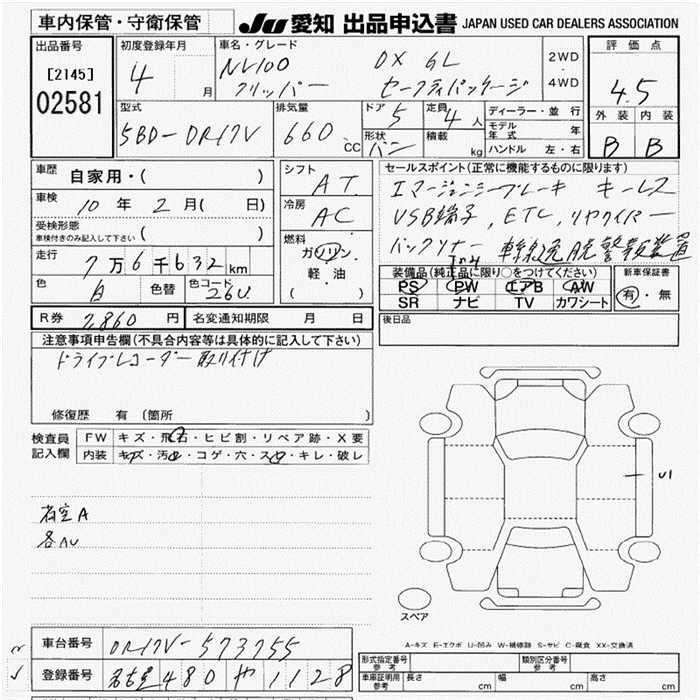 車内保管・守衛保管
JU 愛知 出品申込書 JAPAN USED CAR DEALERS ASSOCIATION
出品番号
[2145]
02581
初度登録年月
4 月
車名・グレード
NV100 DX GL
クリッパー セーフティパッケージ
2WD
4WD
評価点
4.5
外装 内装
B B
型式
5BD-DR17V
排気量
660 CC
ドア 5
定員 4 人
形状 バン
積載 kg
ディーラー・並行
モデル年式 年
ハンドル 左・右
車歴
自家用・( )
車検
10 年 2 月( 日)
受検形態
車検付きのみ記入して下さい ( )
走行
7万6千632km
色 白 色替 色コード 26U
シフト
AT
冷房
AC
燃料
ガソリン
軽・油
( )
セールスポイント(正常に機能するものに限ります)
エマージェンシーブレーキ キーレス
USB端子,ETC,リヤワイパー
バックソナー 車線逸脱警報装置
装備品(純正品に限り○をつけてください)
PS PW エアB AW
SR ナビ TV カワシート
新車保証書
有・無
R券 7,860 円 名変通知期限 月 日
後日品
注意事項申告欄(不具合内容等は具体的に記入して下さい)
ドライブレコーダー取り付け
修復歴 有 (箇所 )
検査員記入欄
FW キズ・飛石・ヒビ割・リペア跡・X要
内装 キズ・汚・コゲ・穴・スレ・キレ・破レ
荷室A
各ヘU
U1
スペア
A-キズ E-エクボ U-凹み W-補修跡 S-サビ C-腐食 XX-交換済
車台番号 DR17V-573755
登録番号 名古屋 480 や 1128
形式指定番号 参考 類別区分番号 参考
車庫証明用 参考 長さ cm 幅 cm 高さ cm